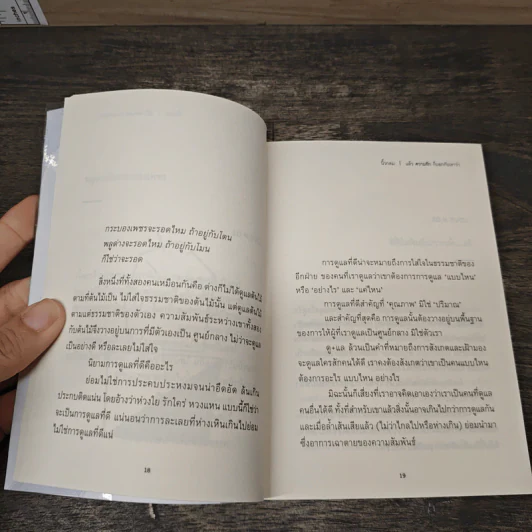 กระบองเพชรจะรอดไหม ถ้าอยู่กับโตน
พลูด่างจะรอดไหม ถ้าอยู่กับโมน
ก็ใช่ว่าจะรอด
สิ่งหนึ่งที่ทั้งสองคนเหมือนกันคือ ต่างก็ไม่ได้ดูแลต้นไม้
ตามที่ต้นไม้เป็น ไม่ใส่ใจธรรมชาติของต้นไม้นั้น แต่ดูแลต้นไม้
ตามแต่ธรรมชาติของตัวเอง ความสัมพันธ์ระหว่างเขาทั้งสอง
กับต้นไม้จึงวางอยู่บนการที่มีตัวเองเป็น ศูนย์กลาง ไม่ว่าจะดูแล
เป็นอย่างดี หรือละเลยไม่ใส่ใจ
นิยามการดูแลที่ดีคืออะไร
ย่อมไม่ใช่การประคบประหงมจนน่าอึดอัด ล้นเกิน
ประกบติดแน่น โดยอ้างว่าห่วงใย รักใคร่ หวงแหน แบบนี้ก็ใช่ว่า
จะเป็นการดูแลที่ดี แน่นอนว่าการละเลยที่ห่างเหินเกินไปย่อม
ไม่ใช่การดูแลที่ดีแน่
18
การดูแลที่ดีน่าจะหมายถึงการใส่ใจในธรรมชาติของ
อีกฝ่าย ของคนที่เราดูแลว่าเขาต้องการการดูแล 'แบบไหน'
หรือ 'อย่างไร' และ 'แค่ไหน'
การดูแลที่ดีสำคัญที่ 'คุณภาพ' มิใช่ 'ปริมาณ'
และสำคัญที่สุดคือ การดูแลนั้นต้องวางอยู่บนพื้นฐาน
ของการให้ผู้ที่เราดูแลเป็นศูนย์กลาง มิใช่ตัวเรา
ดู+แล ล้วนเป็นคำที่หมายถึงการสังเกตและเฝ้ามอง
จะดูแลใครสักคนได้ดี เราคงต้องสังเกตว่าเขาเป็นคนแบบไหน
ต้องการอะไร แบบไหน อย่างไร
มิฉะนั้นก็เสี่ยงที่เราอาจคิดเอาเองว่าเราเป็นคนที่ดูแล
คนอื่นได้ดี ทั้งที่สำหรับเขาแล้วสิ่งนั้นอาจเกินไปกว่าการดูแลกัน
และเมื่อล้ำเส้นเสียแล้ว (ไม่ว่าไกลไปหรือห่างเกิน) ย่อมนำมา
ซึ่งอาการเฉาตายของความสัมพันธ์
19